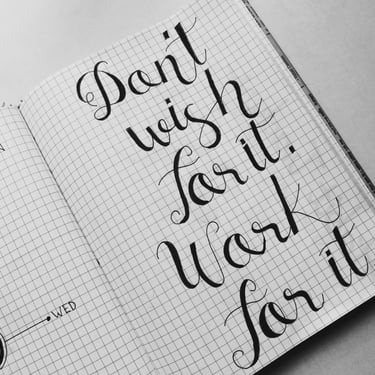 N
WED
Don't
wish
for it.
Work
for it